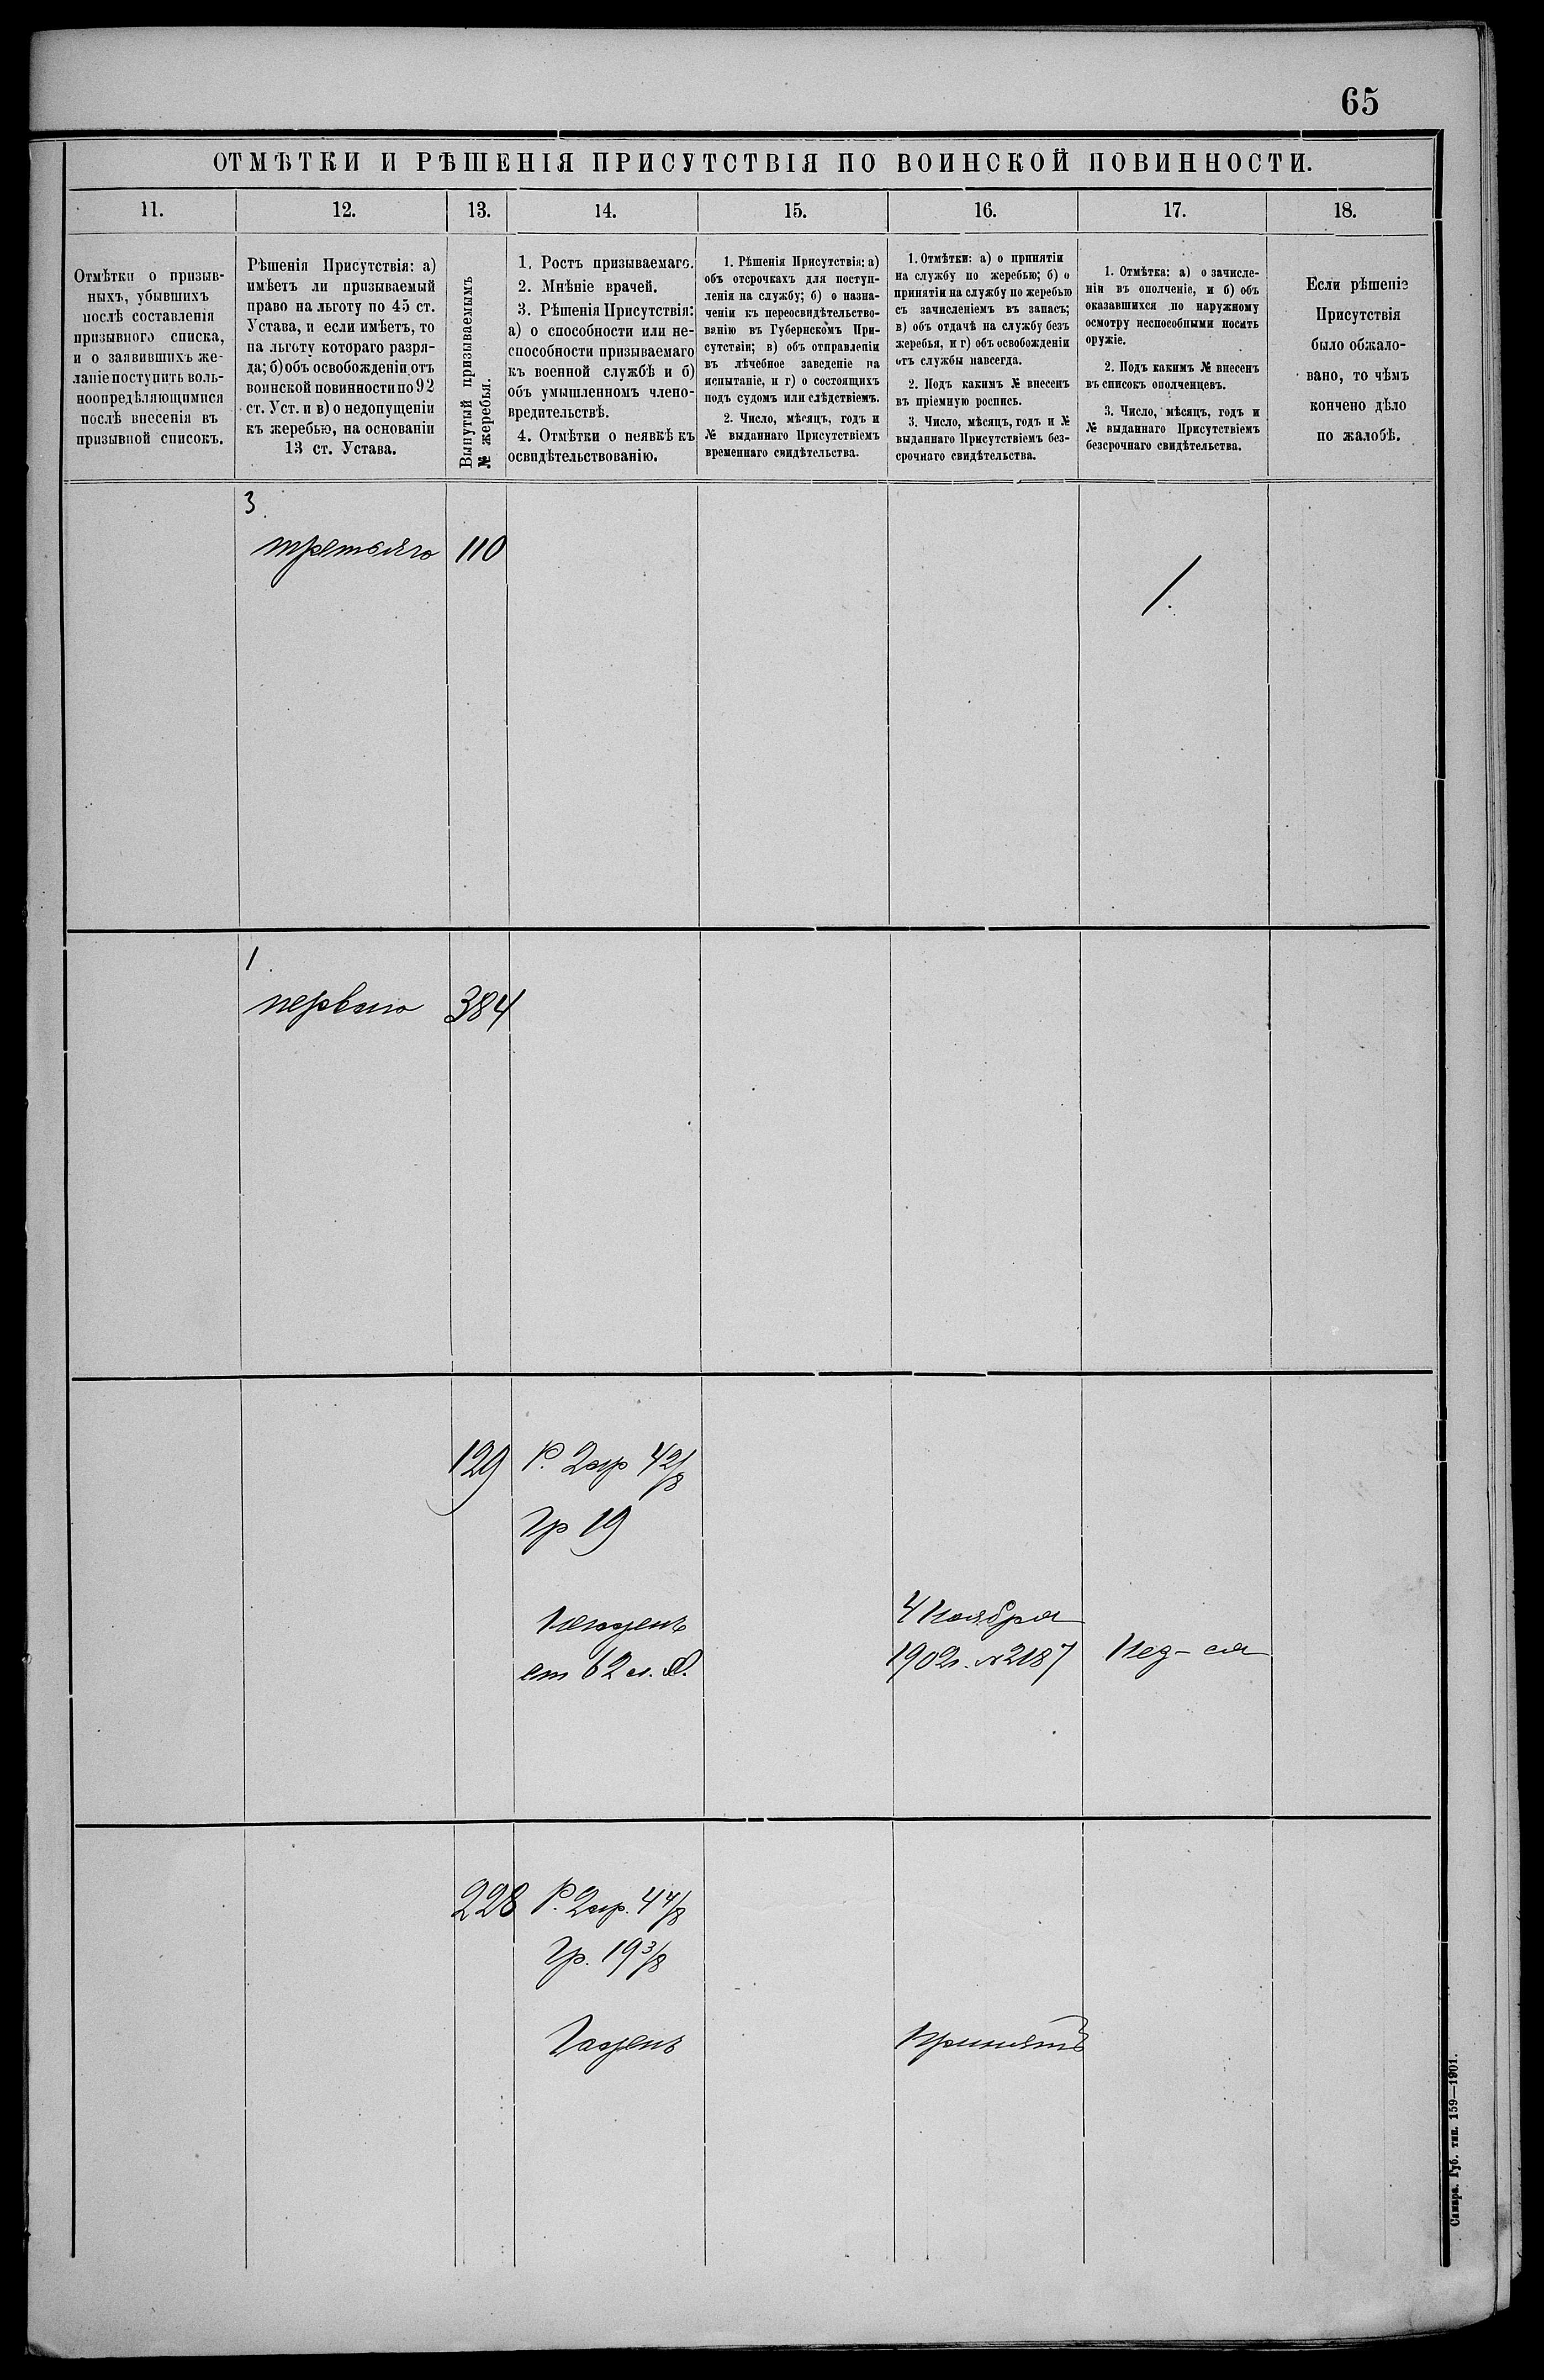 65
ОТМѢТКИ И РѢШЕНІЯ ПРИСУТСТВІЯ ПО ВОИНСКОЙ ПОВИННОСТИ.
11.
12.
13.
14.
15.
16.
17.
18.
Отмѣтки о призыв-
ныхъ, убывшихъ
послѣ составленія
призывного списка,
и о заявившихъ же-
ланіе поступить воль-
ноопредѣляющимися
послѣ внесенія въ
призывной списокъ.
Рѣшенія Присутствія: а)
имѣетъ ли призываемый
право на льготу по 45 ст.
Устава, и если имѣетъ, то
на льготу котораго разря-
да; б) объ освобожденіи отъ
воинской повинности по 92
ст. Уст. и в) о недопущеніи
къ жеребью, на основаніи
13 ст. Устава.
Вынутый призываемымъ
№ жеребья.
1. Ростъ призываемаго.
2. Мнѣніе врачей.
3. Рѣшенія Присутствія:
а) о способности или не-
способности призываемаго
къ военной службѣ и б)
объ умышленномъ члено-
вредительствѣ.
4. Отмѣтки о неявкѣ къ
освидѣтельствованію.
1. Рѣшенія Присутствія: а)
объ отсрочкахъ для поступ-
ленія на службу; б) о назна-
ченіи къ переосвидѣтельство-
ванію въ Губернскомъ При-
сутствіи; в) объ отправленіи
въ лѣчебное заведеніе на
испытаніе, и г) о состоящихъ
подъ судомъ или слѣдствіемъ.
2. Число, мѣсяцъ, годъ и
№ выданнаго Присутствіемъ
временнаго свидѣтельства.
1. Отмѣтки: а) о принятіи
на службу по жеребью; б) о
принятіи на службу по жеребью
съ зачисленіемъ въ запасъ;
в) объ отдачѣ на службу безъ
жеребья, и г) объ освобожденіи
отъ службы навсегда.
2. Подъ какимъ № внесенъ
въ пріемную роспись.
3. Число, мѣсяцъ, годъ и №
выданнаго Присутствіемъ без-
срочнаго свидѣтельства.
1. Отмѣтка: а) о зачисле-
ніи въ ополченіе, и б) объ
оказавшихся по наружному
осмотру неспособными носить
оружіе.
2. Подъ какимъ № внесенъ
въ списокъ ополченцевъ.
3. Число, мѣсяцъ, годъ и
№ выданнаго Присутствіемъ
безсрочнаго свидѣтельства.
Если рѣшеніе
Присутствія
было обжало-
вано, то чѣмъ
кончено дѣло
по жалобѣ.
3
третьяго
110
1.
1
перваго
384
129
Р. 2 ар 4 2/8
Гр 19
Негоденъ
ст 62 л. А.
4 Ноября
1902 г. № 2187
228
Р. 2 ар. 4 4/8
Гр. 19 3/8
Годенъ
Принятъ
Самара. Губ. тип. 159—1901.